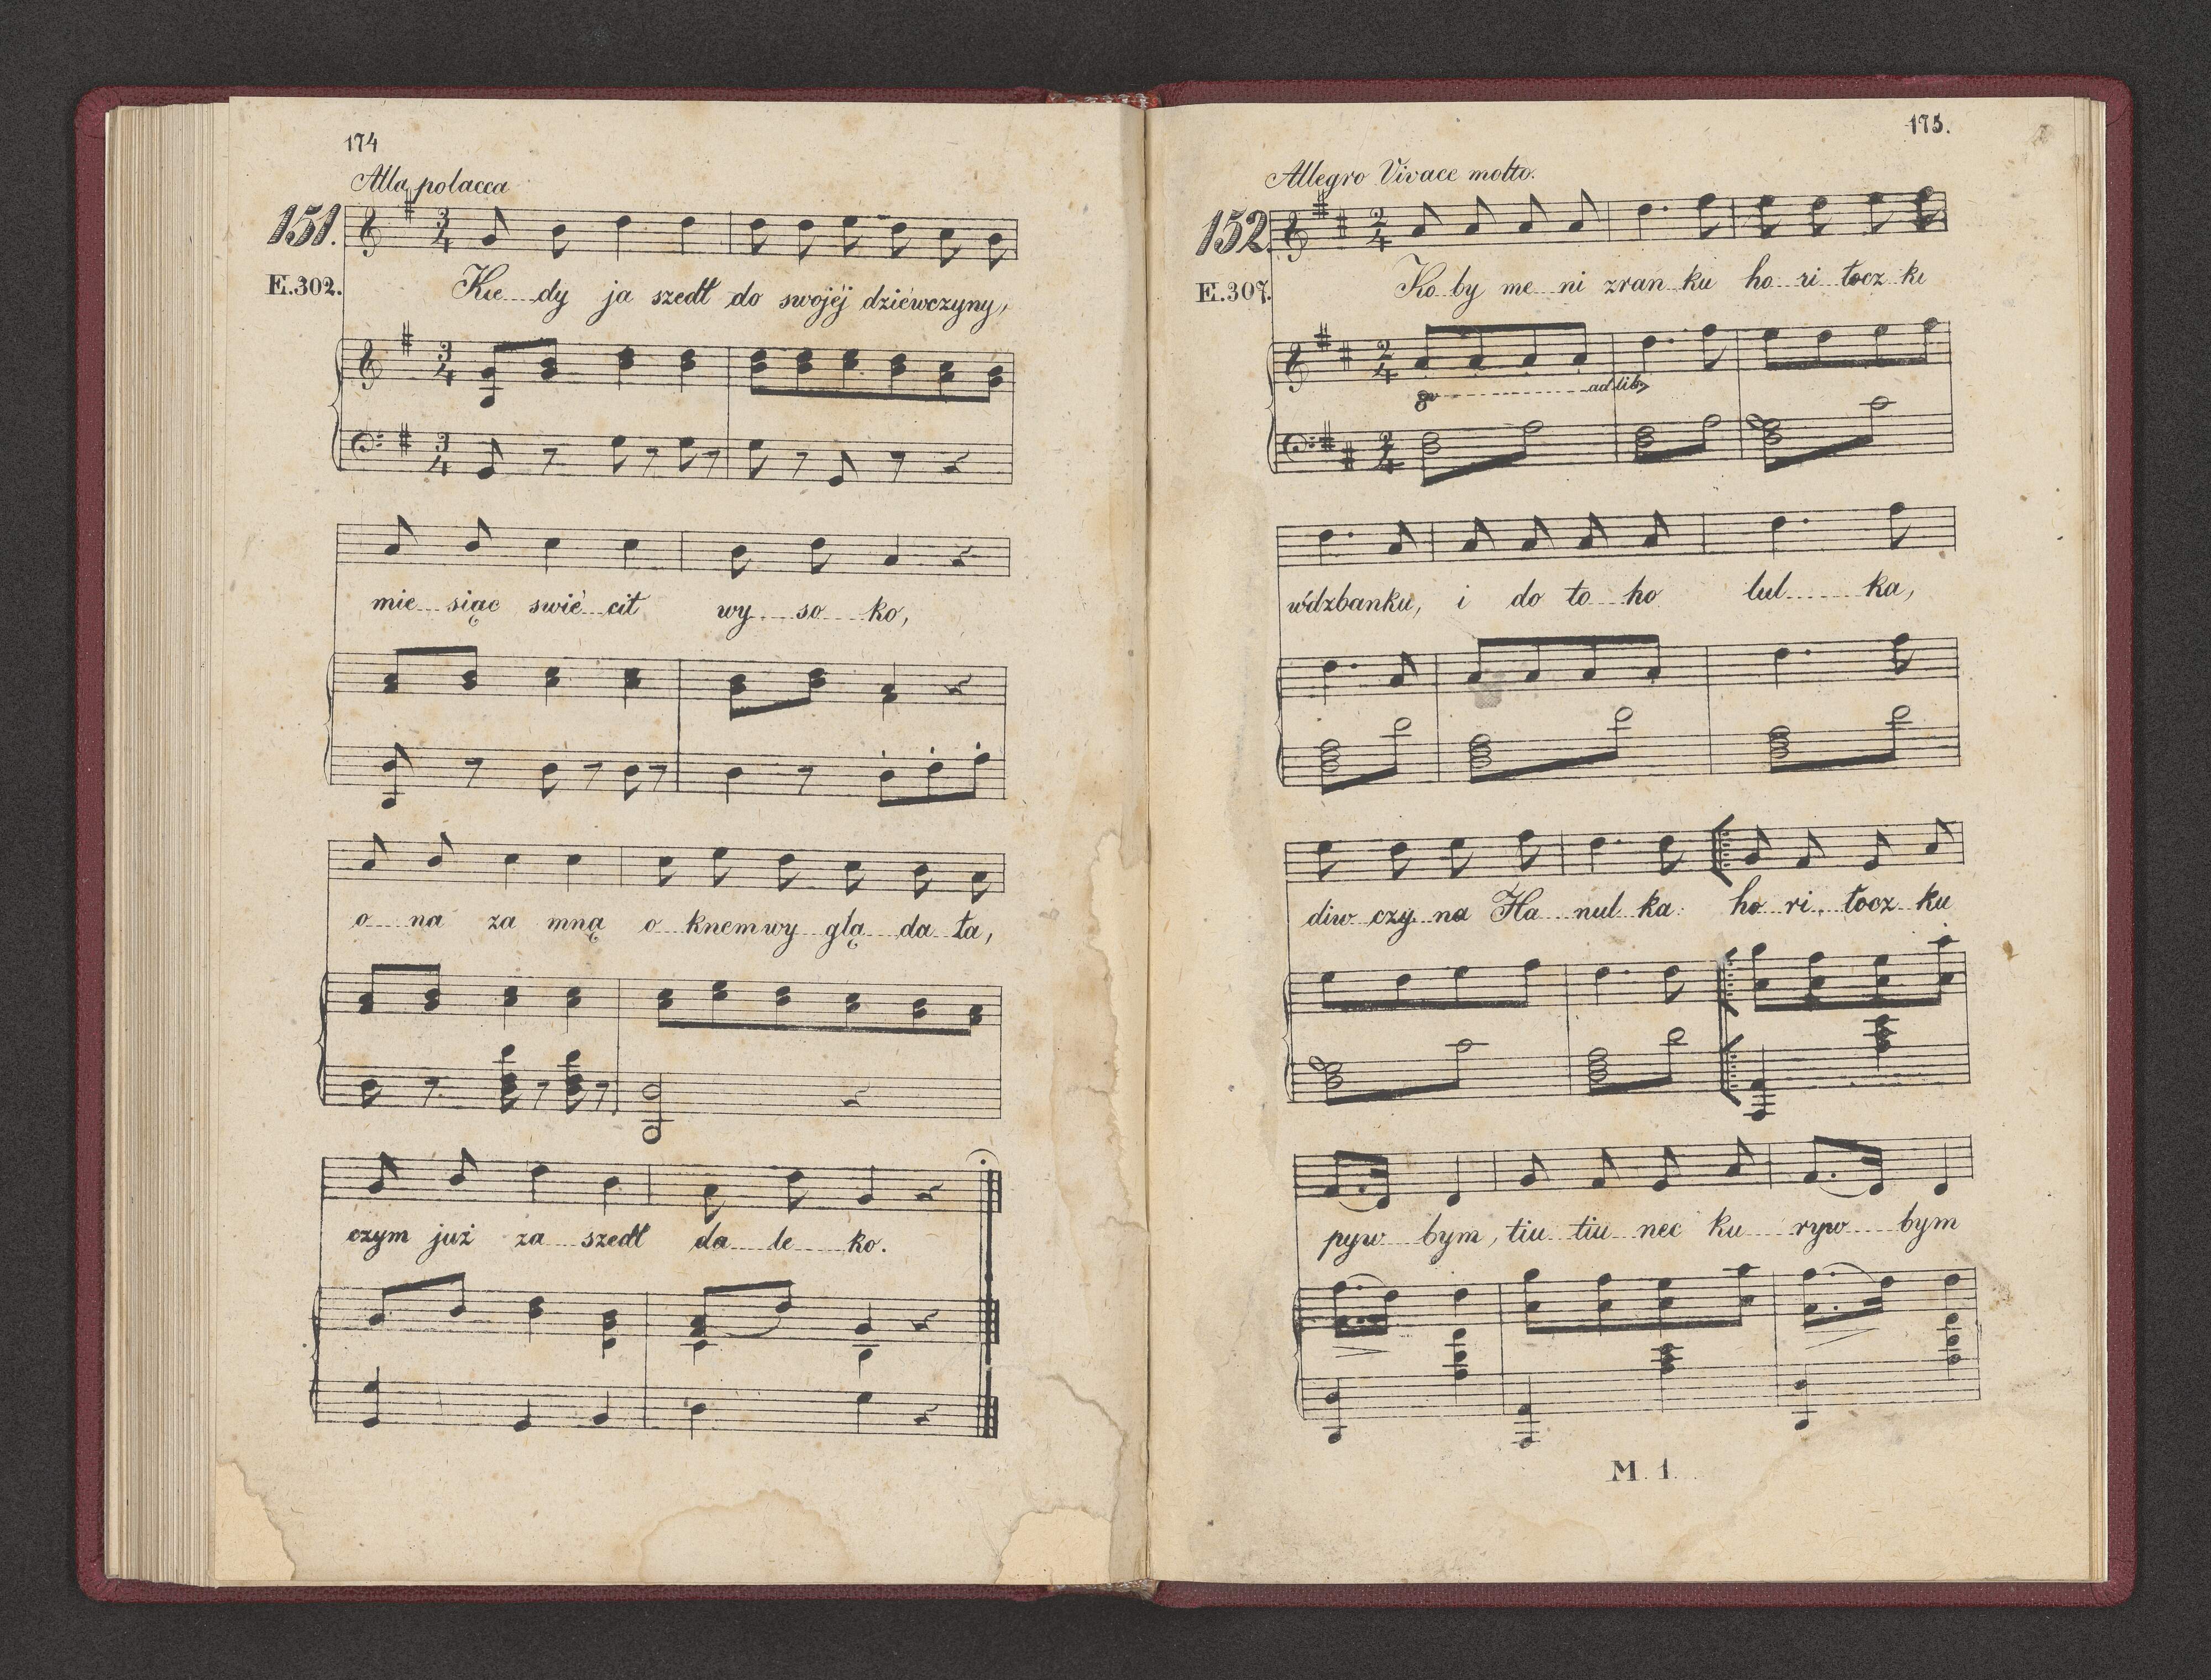 174
Alla polacca
151.
E.302.
Kie dy ja szedł do swojéj dziéwczyny,
mie siąc swié cił wy so ko,
o na za mną o knem wy glą da ła,
czym już za szedł da le ko.
175.
Allegro Vivace molto.
152.
E.307.
Ko by me ni zran ku ho ri łocz ki
8va ad lib.
wdzbanku, i do to ho lul ka,
diw czy na Ha nul ka ho ri łocz ku
pyw bym, tiu tiu nec ku ryw bym
M. 1.